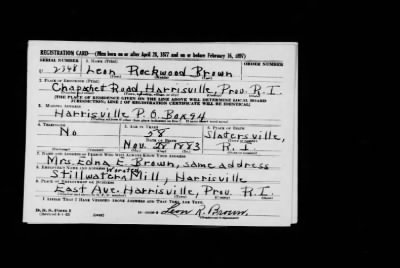 REGISTRATION CARD—(Men born on or after April 28, 1877 and on or before February 16, 1897)
SERIAL NUMBER 1. NAME (Print) ORDER NUMBER
U 2348 Leon Rockwood Brown
(First) (Middle) (Last)
2. PLACE OF RESIDENCE (Print)
Chapachet Road, Harrisville, Prov. R.I.
[THE PLACE OF RESIDENCE GIVEN ON THE LINE ABOVE WILL DETERMINE LOCAL BOARD
JURISDICTION; LINE 2 OF REGISTRATION CERTIFICATE WILL BE IDENTICAL]
3. MAILING ADDRESS
Harrisville P.O. Box 94
4. TELEPHONE 5. AGE IN YEARS 6. PLACE OF BIRTH
No 58 Slatersville,
DATE OF BIRTH
Nov. 28 1883 R. I.
7. NAME AND ADDRESS OF PERSON WHO WILL ALWAYS KNOW YOUR ADDRESS
Mrs. Edna E. Brown, same address
8. EMPLOYER'S NAME AND ADDRESS
Stillwater Worsted Mill, Harrisville
9. PLACE OF EMPLOYMENT OR BUSINESS
East Ave. Harrisville, Prov. R.I.
I AFFIRM THAT I HAVE VERIFIED ABOVE ANSWERS AND THAT THEY ARE TRUE.
D. S. S. Form 1
Leon R. Brown